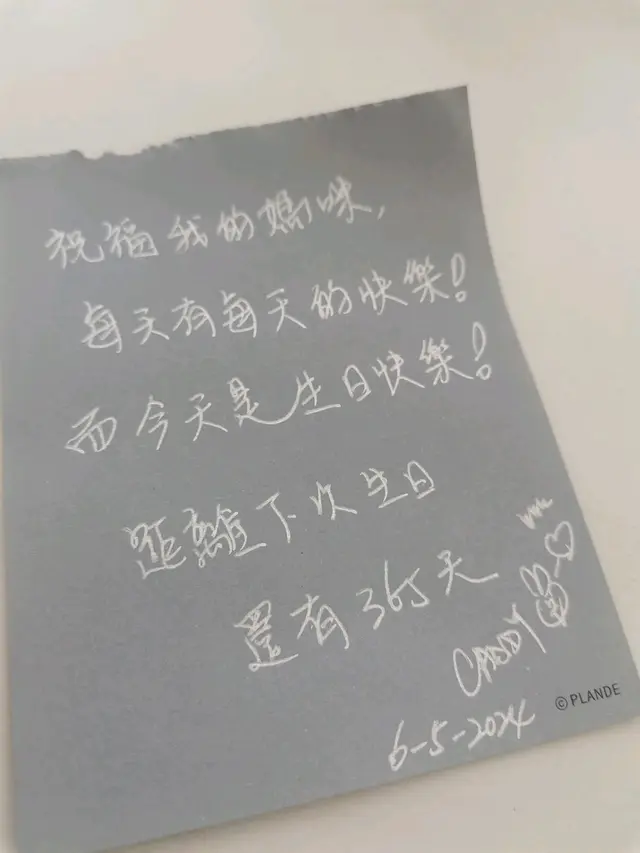 祝福我的媽咪,
每天有每天的快樂!
而今天是生日快樂!
距離下次生日
還有365天
CADDY
6-5-2024
©PLANDE